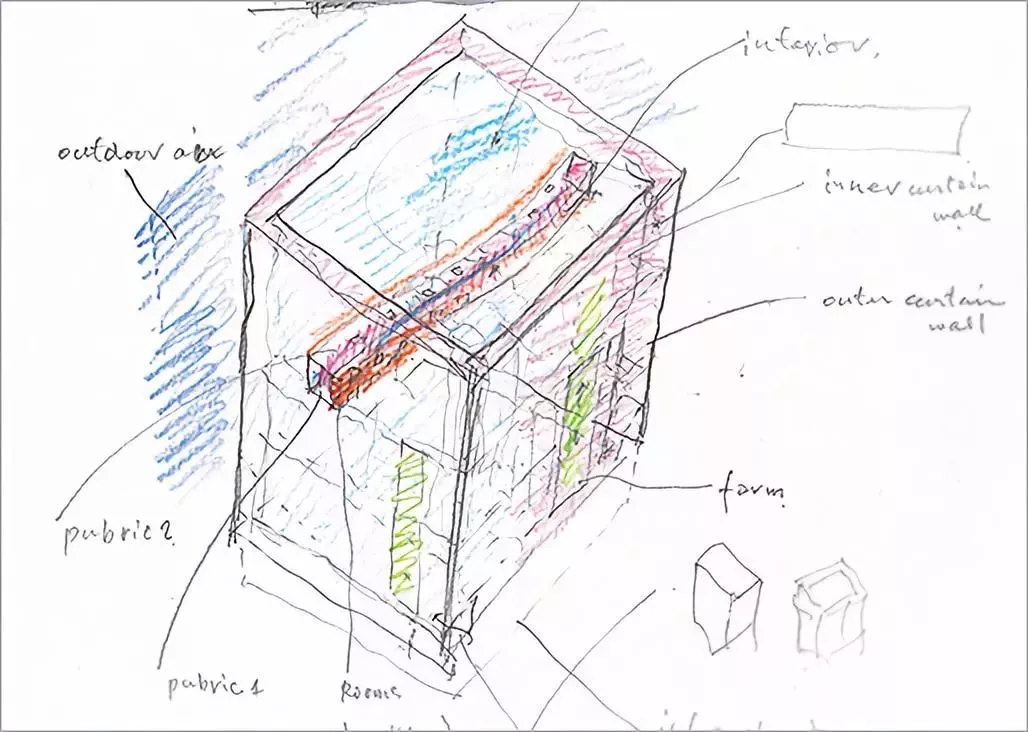 interior,
outdoor air
inner curtain
wall
outer curtain
wall
farm
pubric 2
pubric 1
Rooms